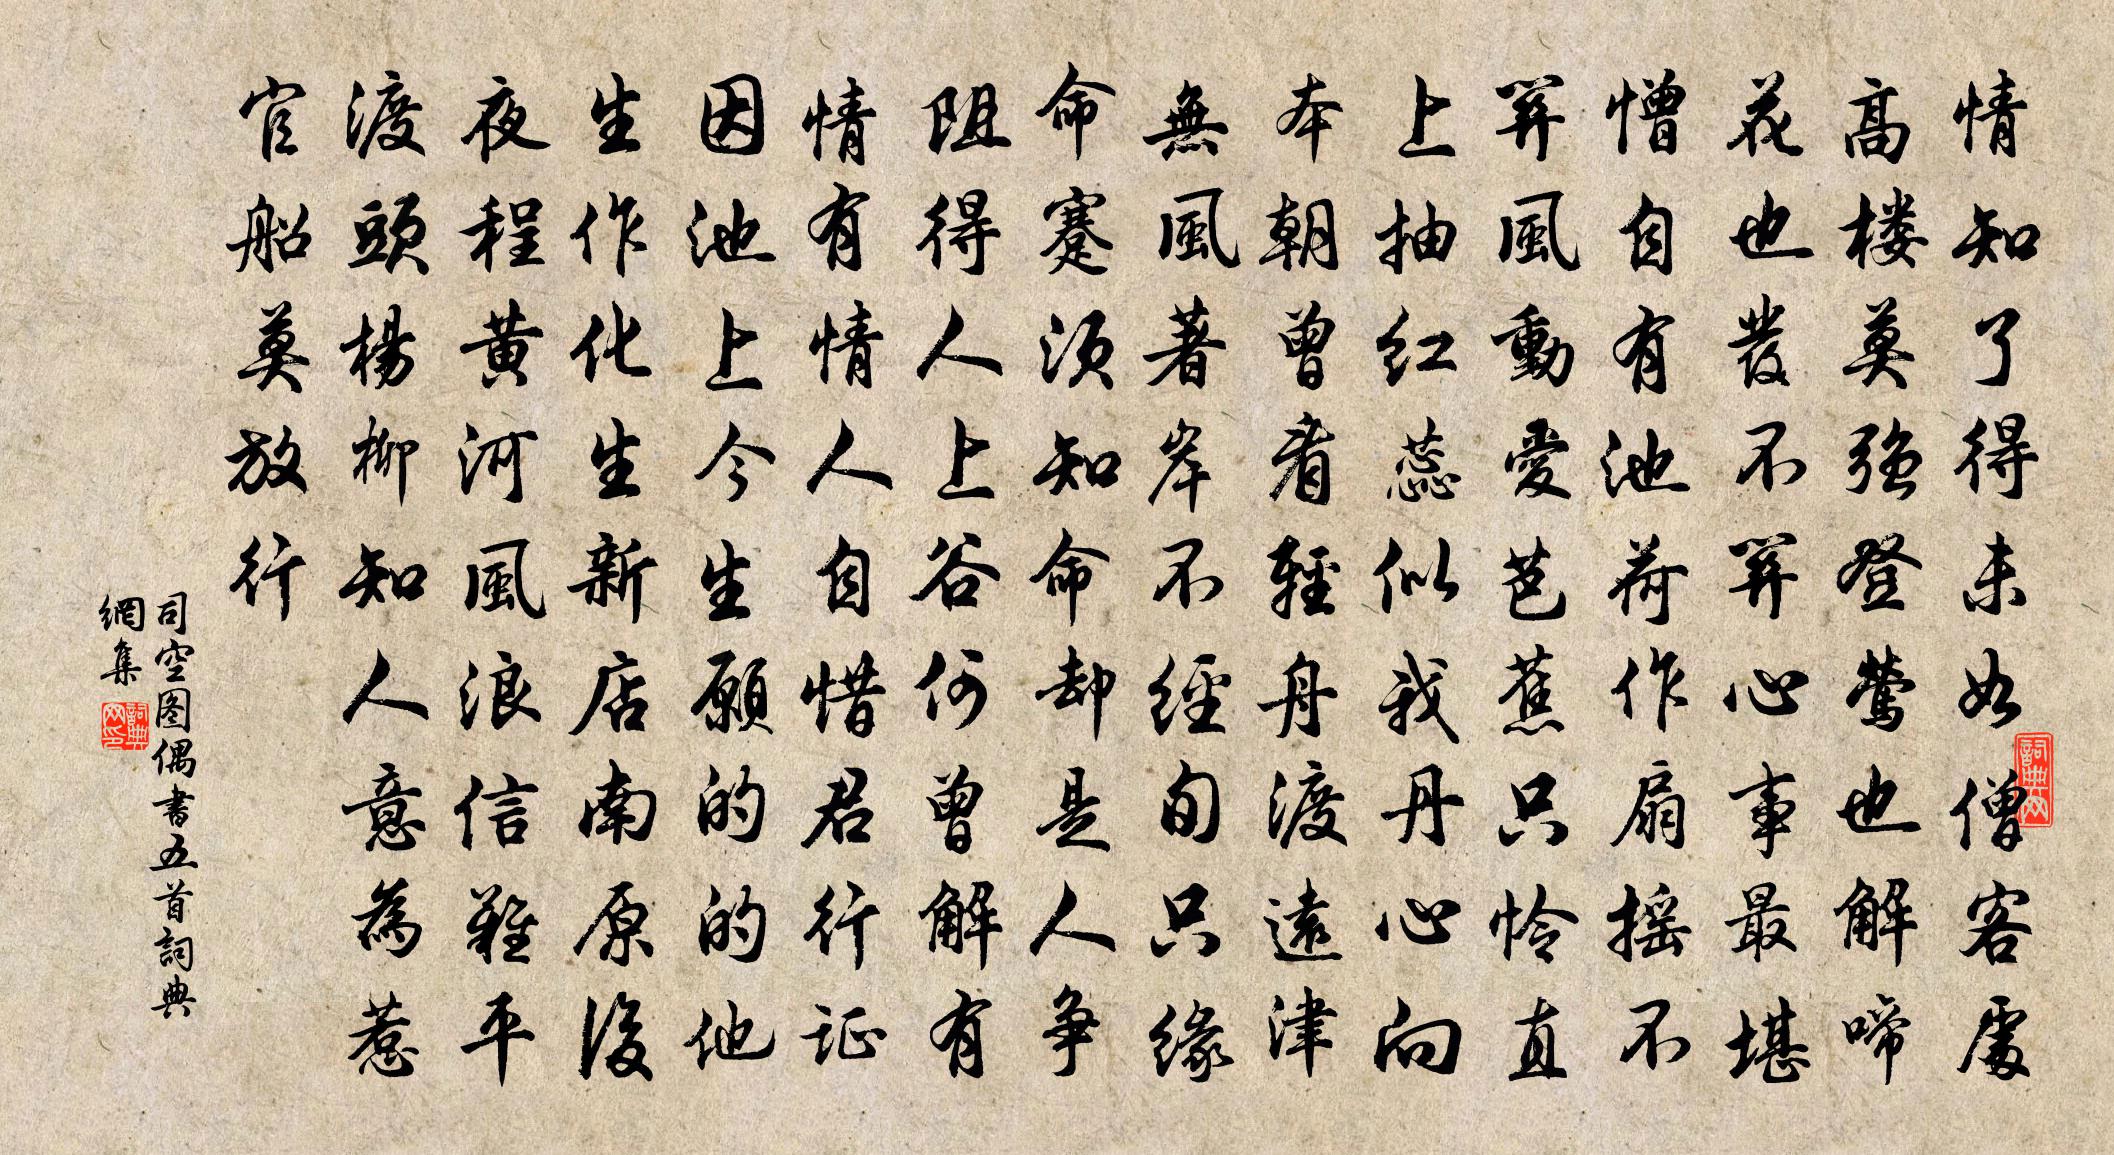 情知了得未如僧客處
高楼莫强登莺也解啼
花也發不關心事最堪
憎自有池荷作扇摇不
關風動愛芭蕉只怜直
上抽红蕊似我丹心向
本朝曾看輕舟渡遠津
無風著岸不經旬只缘
命蹇须知命却是人争
阻得人上谷何曾解有
情有情人自惜君行证
因池上今生願的的他
生作化生新店南原後
夜程黄河風浪信難平
渡頭楊柳知人意為惹
官船莫放行
司空图偶書五首詞典
網集
詞典网
詞典网印